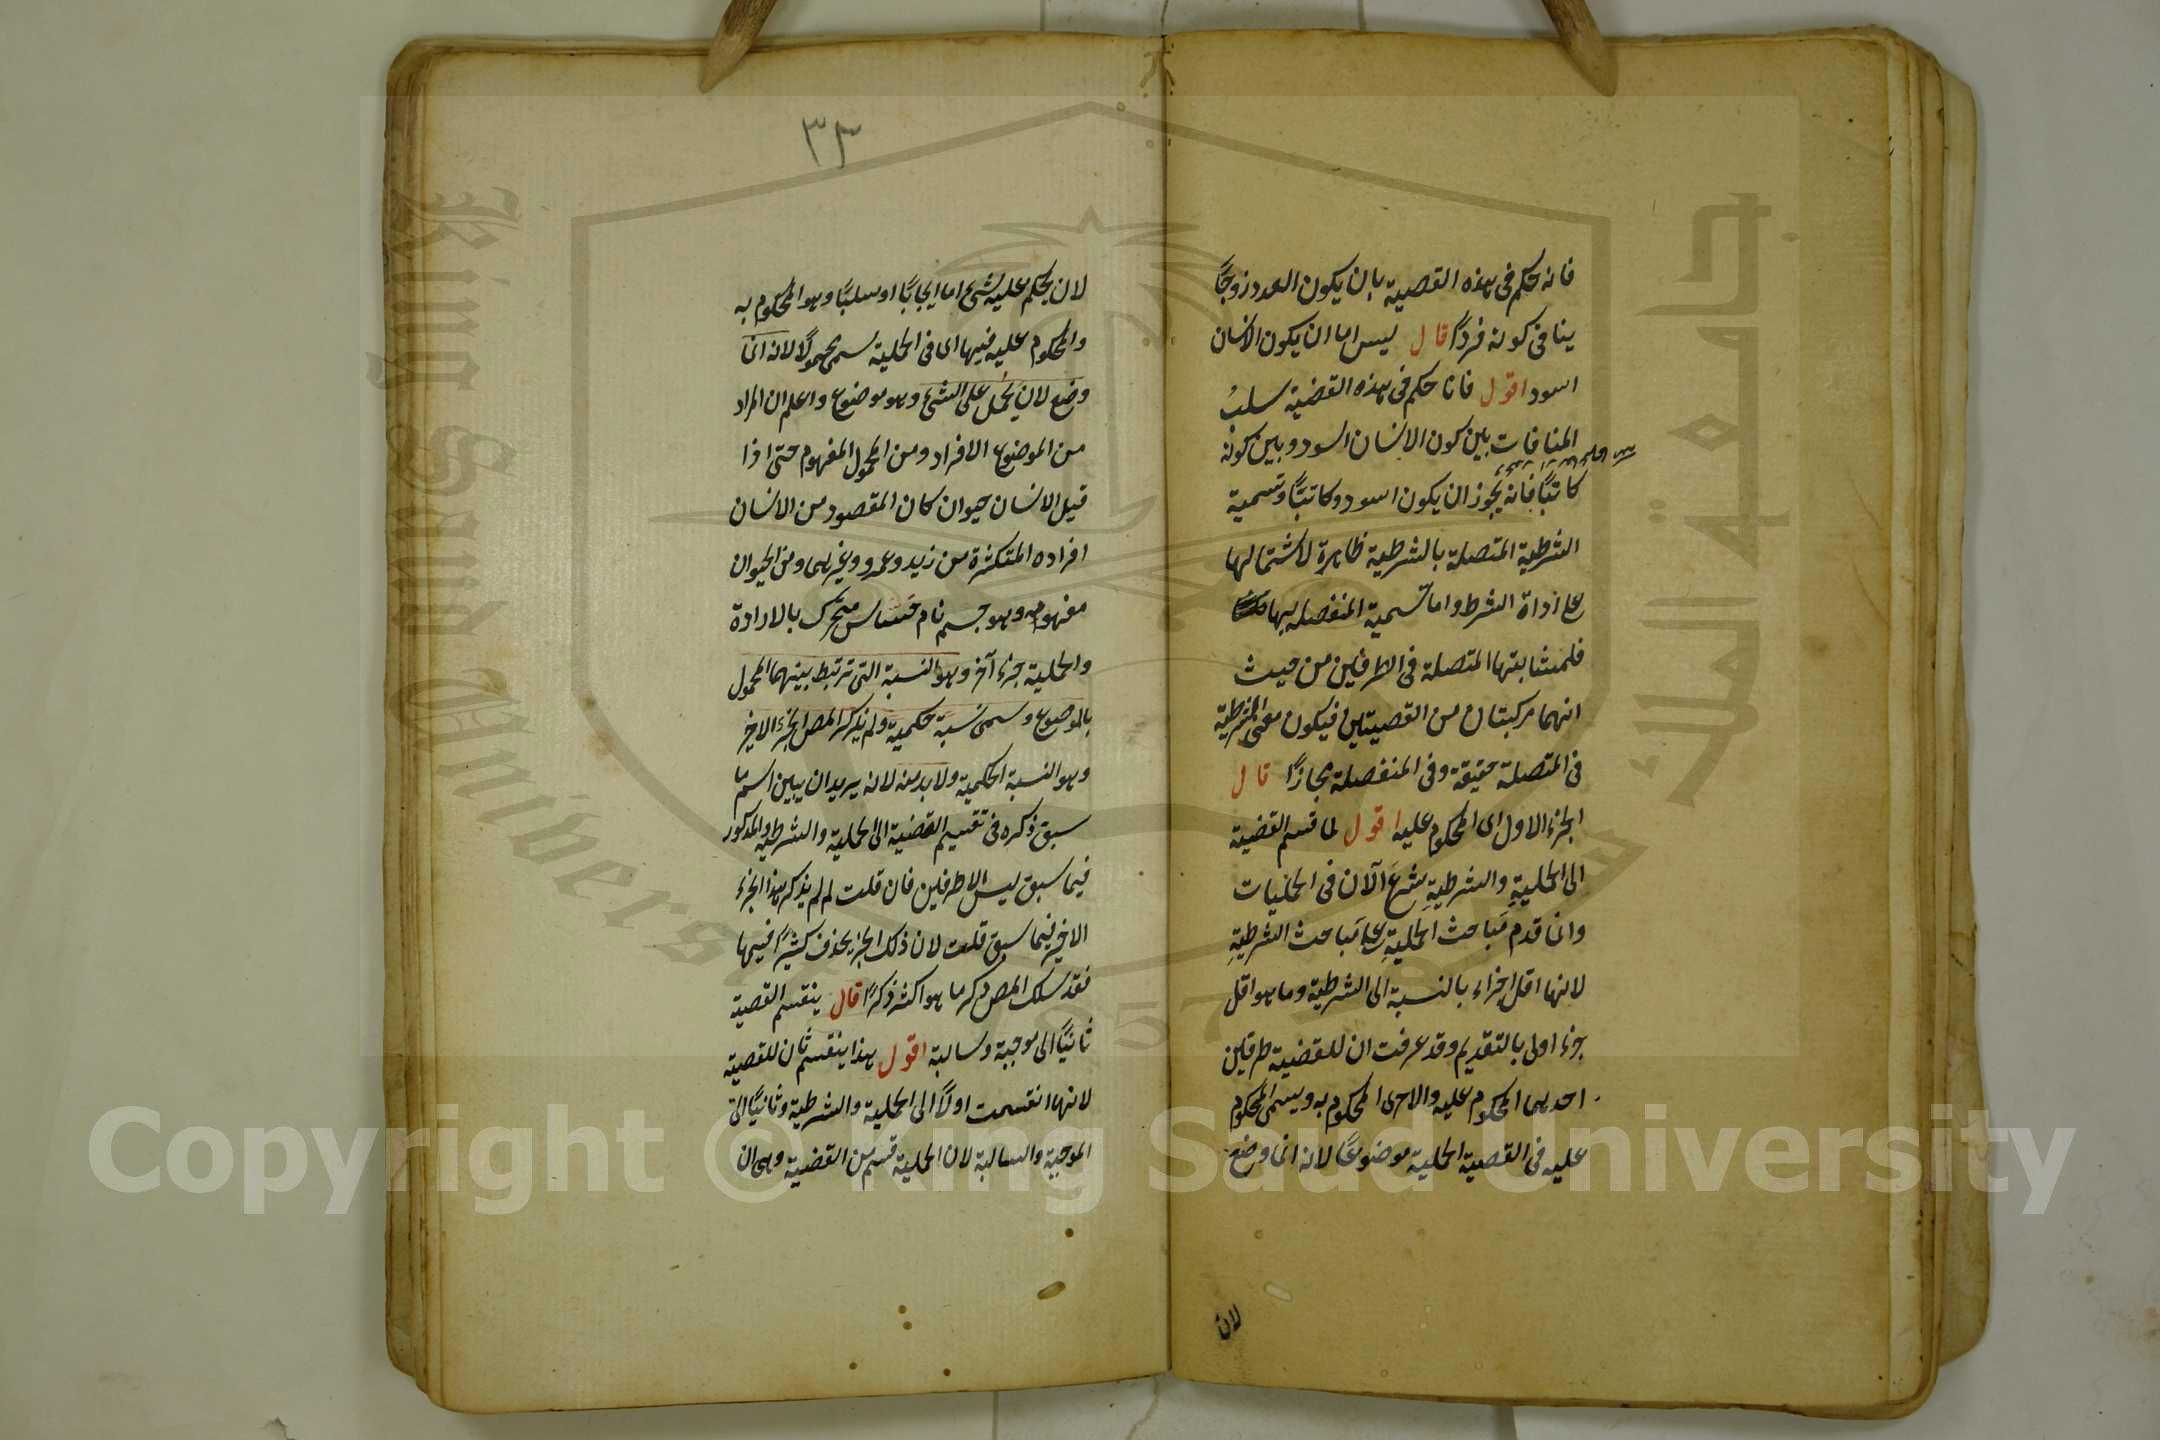 فانه حكم فى هذه القضية بان يكون العدد زوجًا
ينافى كونه فردًا قال ليس اما ان يكون الانسان
اسود اقول فانا حكم فى هذه القضية سلب
المنافات بين كون الانسان اسود وبين كونه
كاتبًا فانه يجوز ان يكون اسود وكاتبًا وتسمية
الشرطية المتصلة بالشرطية ظاهرة لاشتمالها
على اداة الشرط واما تسمية المنفصلة بها
فلمشابهتها المتصلة فى الطرفين من حيث
انهما مركبتان من القضيتين فيكون معنى الشرطية
فى المتصلة حقيقة وفى المنفصلة مجازًا قال
الجزء الاول اى المحكوم عليه اقول لما قسم القضية
الى الحملية والشرطية شرع الآن فى الحمليات
وانما قدم مباحث الحملية على مباحث الشرطية
لانها اقل اجزاء بالنسبة الى الشرطية وما هو اقل
جزء اولى بالتقديم وقد عرفت ان للقضية طرفين
احدهما المحكوم عليه والاخرى المحكوم به ويسمى المحكوم
عليه فى القضية الحملية موضوعًا لانه انما وضع
لان
٣٣
لان يحكم عليه بشئ اما ايجابًا او سلبًا وهو المحكوم به
والمحكوم عليه فيها اى فى الحملية يسمى محمولًا لانه انما
وضع لان يحمل على الشئ وهو موضوع واعلم ان المراد
من الموضوع الافراد ومن المحمول المفهوم حتى اذا
قيل الانسان حيوان كان المقصود من الانسان
افراده المتكثرة من زيد وعمرو وغيرهما ومن الحيوان
مفهومه وهو جسم نام حساس متحرك بالارادة
والحملية جزء آخر وهو النسبة التى ترتبط بينهما المحمول
بالموضوع وسمى نسبة حكمية ولم يذكر المص الجزء الاخير
وهو النسبة الحكمية ولا بد منه لانه يريد ان يبين اسم ما
سبق ذكره فى تقسيم القضية الى الحملية والشرطية والمذكور
فيما سبق ليس الا طرفين فان قلت لم لم يذكر هذا الجزء
الاخير فيما سبق قلت لان ذلك الجزء يحذف كثيرًا فيها
فقد سلك المص ذكر ما هو اكثر ذكرًا قال ينقسم القضية
ثانيًا الى موجبة وسالبة اقول هذا ينقسم ثان للقضية
لانها انقسمت اولًا الى الحملية والشرطية وثانيًا الى
الموجبة والسالبة لان الحملية قسم من القضية وهى ان
King Saud University
جامعة الملك سعود
1957
Copyright © King Saud University